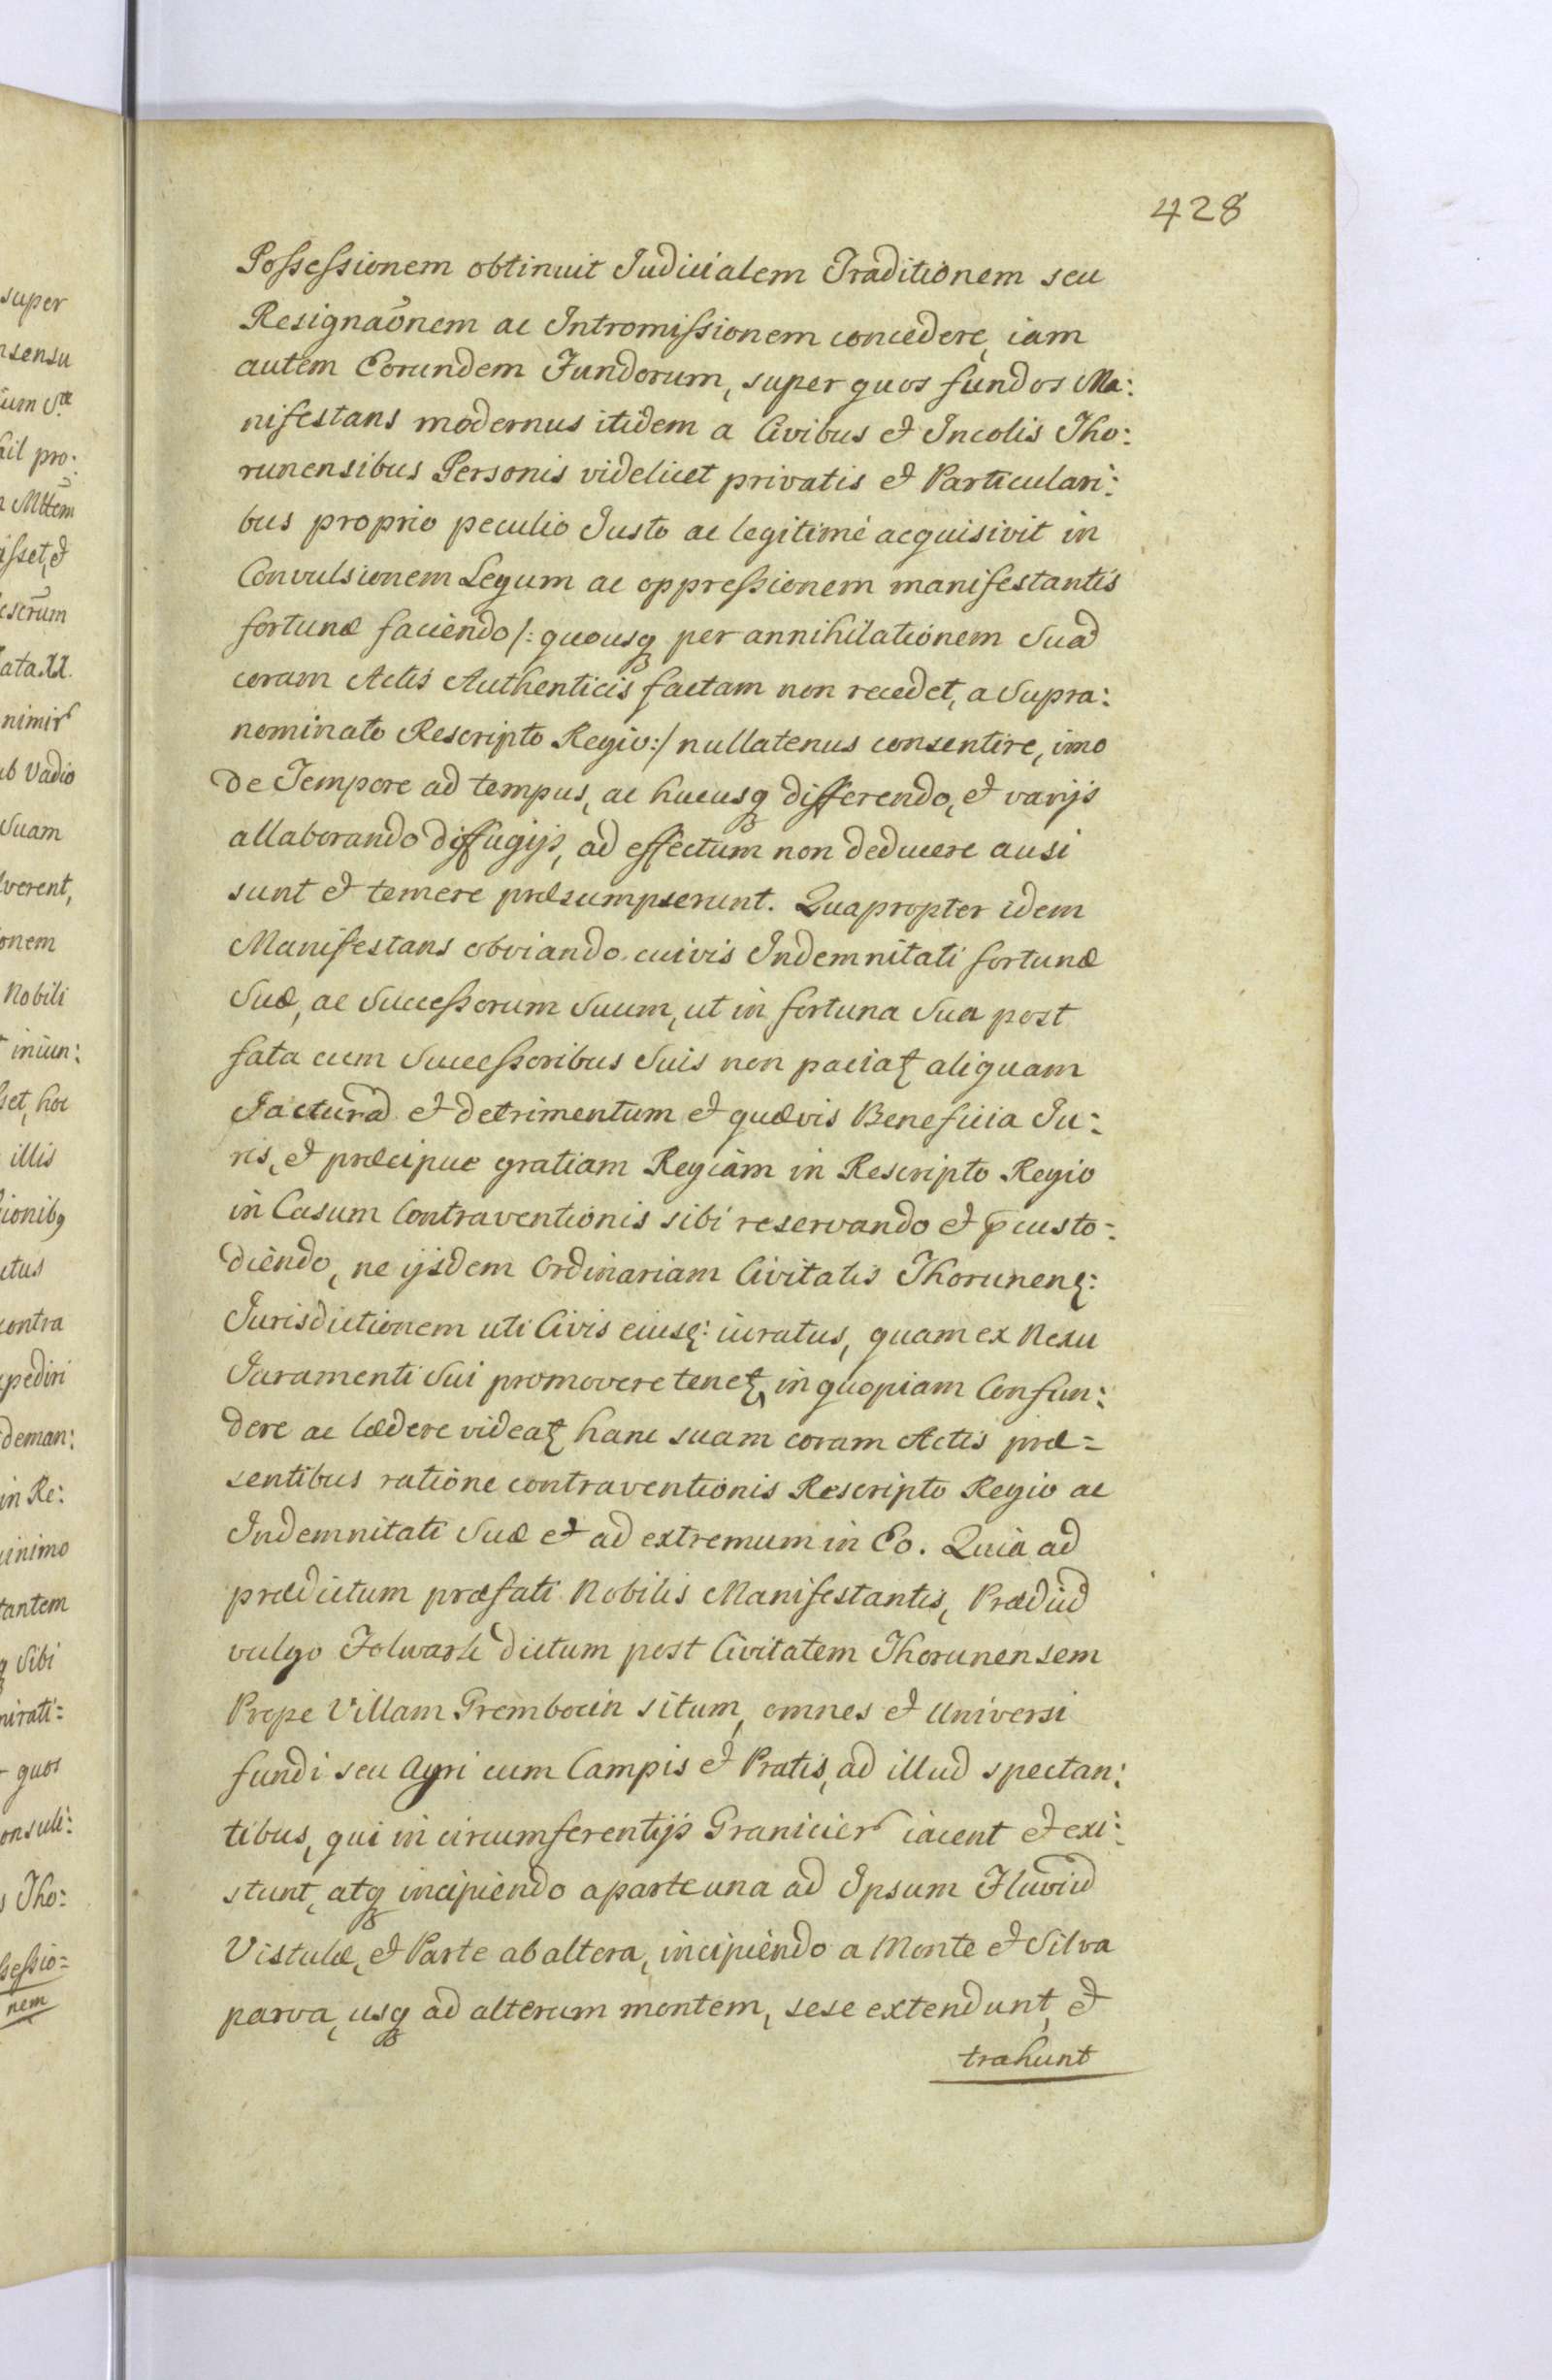 428
Possessionem obtinuit Judicialem Traditionem seu
Resignaōnem ac Intromissionem concedere, iam
autem Eorundem Fundorum, super quos fundos Ma:
nifestans modernus itidem a Civibus et Incolis Tho:
runensibus Personis videlicet privatis et Particulari:
bus proprio peculio Justo ac legitimè acquisivit in
Convulsionem Legum ac oppressionem manifestantis
fortunæ faciendo /: quousq per annihilationem Suā
coram Actis Authenticis factam non recedet, a Supra:
nominato Rescripto Regio:/ nullatenus consentire, imo
de Tempore ad tempus, ac hucusq differendo, et varijs
allaborando diffugijs, ad effectum non deducere ausi
sunt et temere præsumpserunt. Quapropter idem
Manifestans obviando cuivis Indemnitati fortunæ
Suæ, ac Successorum Suum, ut in fortuna Sua post
fata cum Successoribus Suis non paciaʒ aliquam
Jacturā et detrimentum et quævis Beneficia Ju:
ris, et præcipue gratiam Regiam in Rescripto Regio
in Casum Contraventionis sibi reservando et p̄custo=
diendo, ne ijsdem Ordinariam Civitatis Thorunenʒ:
Jurisdictionem uti Civis eiusʒ: iuratus, quam ex Nexu
Juramenti Sui promovere teneʒ, in quopiam Confun:
dere ac lædere videaʒ hanc suam coram Actis præ=
sentibus ratione contraventionis Rescripto Regio ac
Indemnitati Suæ et ad extremum in Eo. Quia ad
prædictum præfati Nobilis Manifestantis, Prædiū
vulgo Folwark dictum post Civitatem Thorunensem
Prope Villam Grembocin situm, omnes et Universi
fundi seu Agri cum Campis et Pratis, ad illud spectan:
tibus, qui in circumferentijs Granicier iacent et exi:
stunt, atq incipiendo a parte una ad Ipsum Fluviū
Vistulæ, et Parte ab altera, incipiendo a Monte et Silva
parva, usq ad alterum montem, sese extendunt, et
trahunt
super
nsensu
il pro:
Mttem
isset, et
nimir
ub Vadio
Suam
lverent,
onem
Nobili
iniun:
set, hoc
illis
ionibꝯ
utus
contra
pediri
deman:
in Re:
inimo
tantem
Sibi
mirati=
quos
onsuli:
Tho:
sessio=
nem